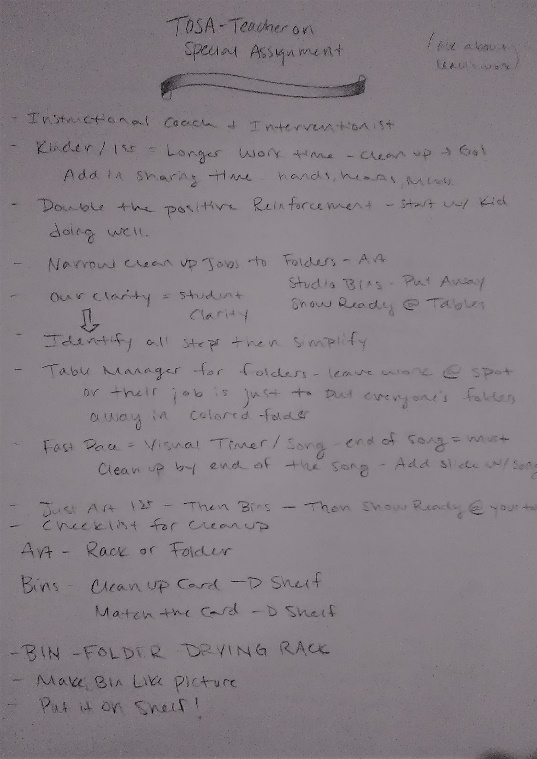 TOSA - Teacher on
Special Assignment
- Instructional Coach + Interventionist
- Kinder/1st = Longer work time - clean up + Go!
Add in sharing time - hands, hearts,
- Double the positive Reinforcement - Start w/ kid
doing well.
- Narrow clean up Jobs to Folders - Art
Studio Bins - Put Away
- our clarity = Student Show Ready @ Tables
Clarity
- Identify all steps then simplify
- Table Manager for folders - leave work @ spot
or their job is just to put everyone's folder
away in colored folder
- Fast Pace = Visual Timer/Song - end of song = must
Clean up by end of the song - Add slide w/ song
- Just Art 1st - Then Bins - Then Show Ready @ your
- Checklist for cleanup
Art - Rack or Folder
Bins - Clean up Card -D Shelf
Match the Card -D Shelf
- BIN - FOLDER DRYING RACK
- Make Bin Like Picture
- Put it on Shelf!